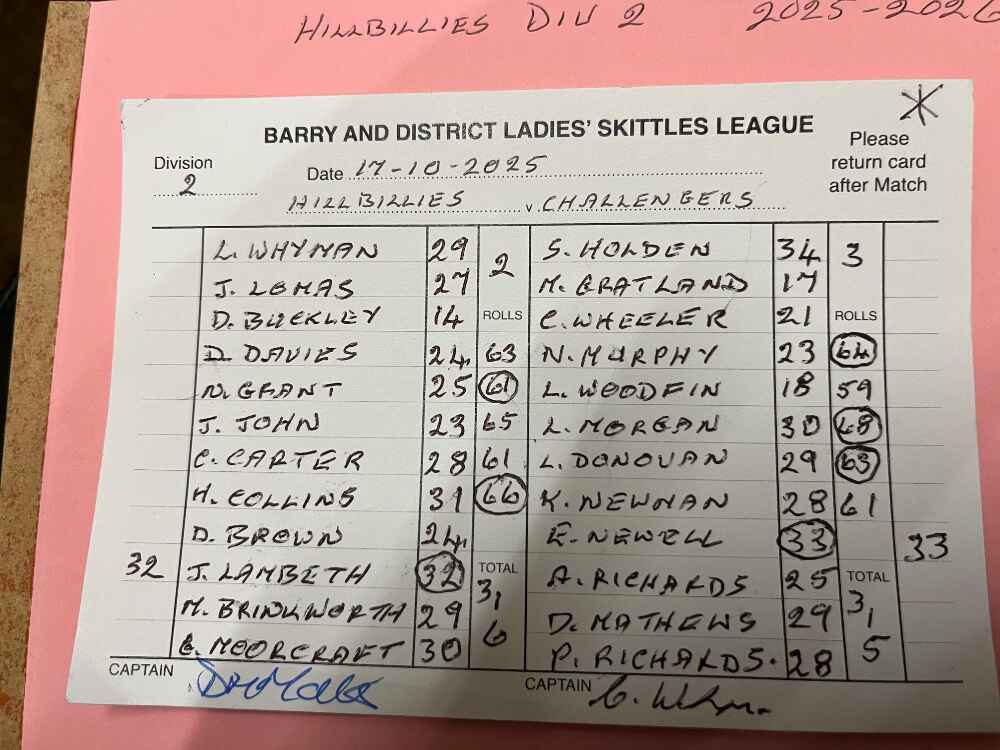 HILLBILLIES DIV 2 2025-2026
BARRY AND DISTRICT LADIES' SKITTLES LEAGUE
Please
return card
after Match
Division
2
Date 17-10-2025
HILLBILLIES v CHALLENGERS
L. WHYMAN 29 2 S. HOLDEN 34 3
J. LOMAS 27 M. GRATLAND 17
D. BUCKLEY 14 ROLLS C. WHEELER 21 ROLLS
D. DAVIES 24 63 N. MURPHY 23 64
N. GRANT 25 61 L. WOODFIN 18 59
J. JOHN 23 65 L. MORGAN 30 68
C. CARTER 28 61 L. DONOVAN 29 63
H. COLLINS 31 66 K. NEWMAN 28 61
D. BROWN 24 E. NEWELL 33 33
32 J. LAMBETH 32 TOTAL A. RICHARDS 25 TOTAL
M. BRINKWORTH 29 31 D. MATHEWS 29 31
G. MOORCRAFT 30 6 P. RICHARDS. 28 5
CAPTAIN CAPTAIN